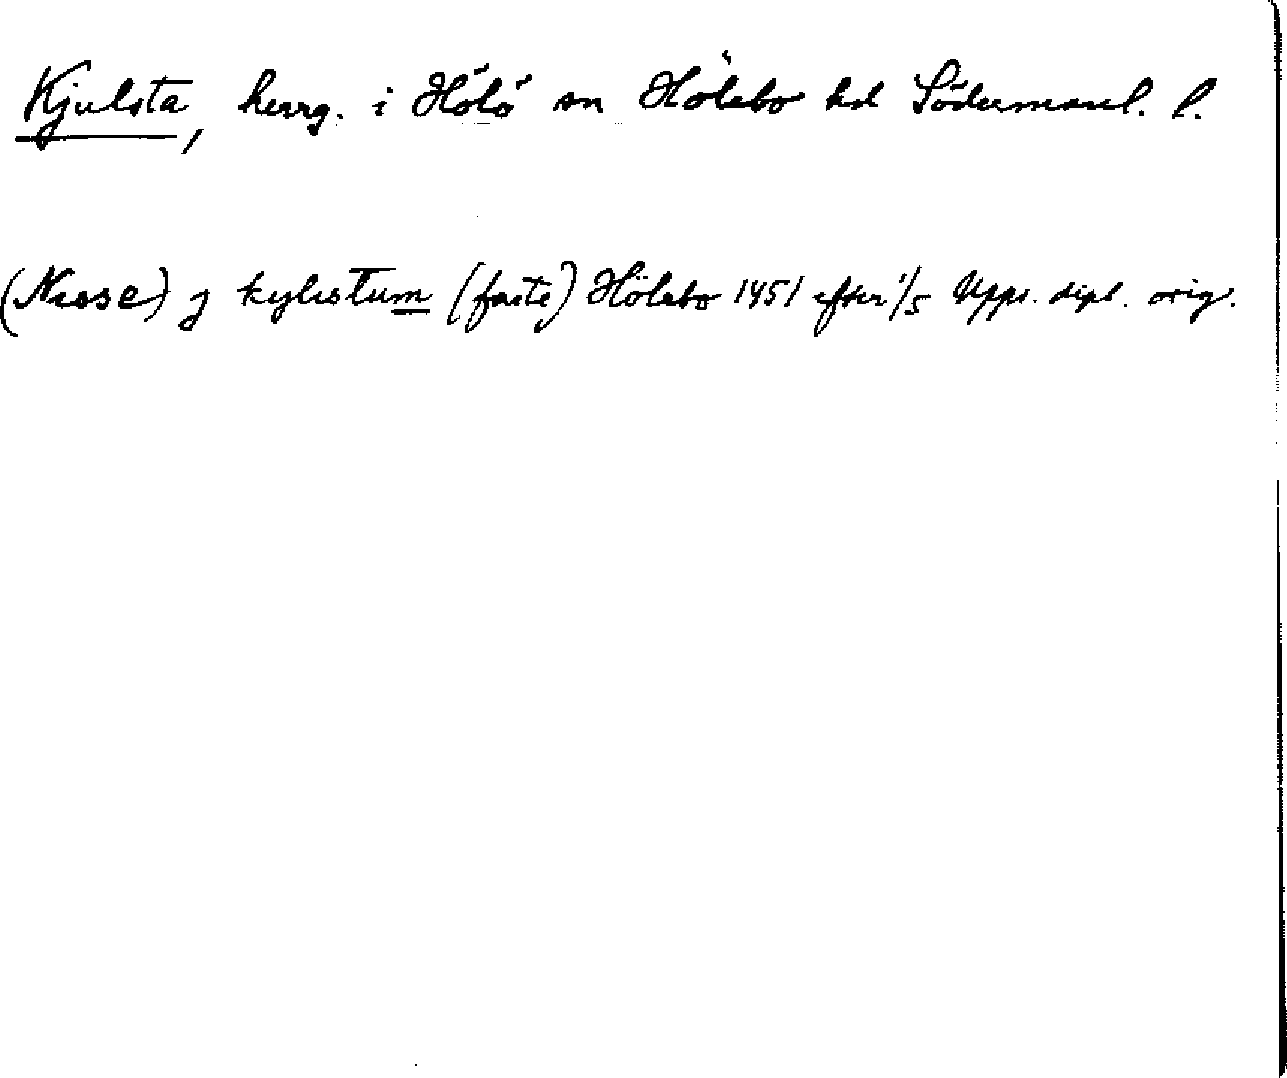 Kjulsta, herrg. i Hölö sn Hölebo hd Södermanl. l.
(Nisse) j kylistum (faste) Hölebo 1451 efter 1/5 Upps. dipl. orig.